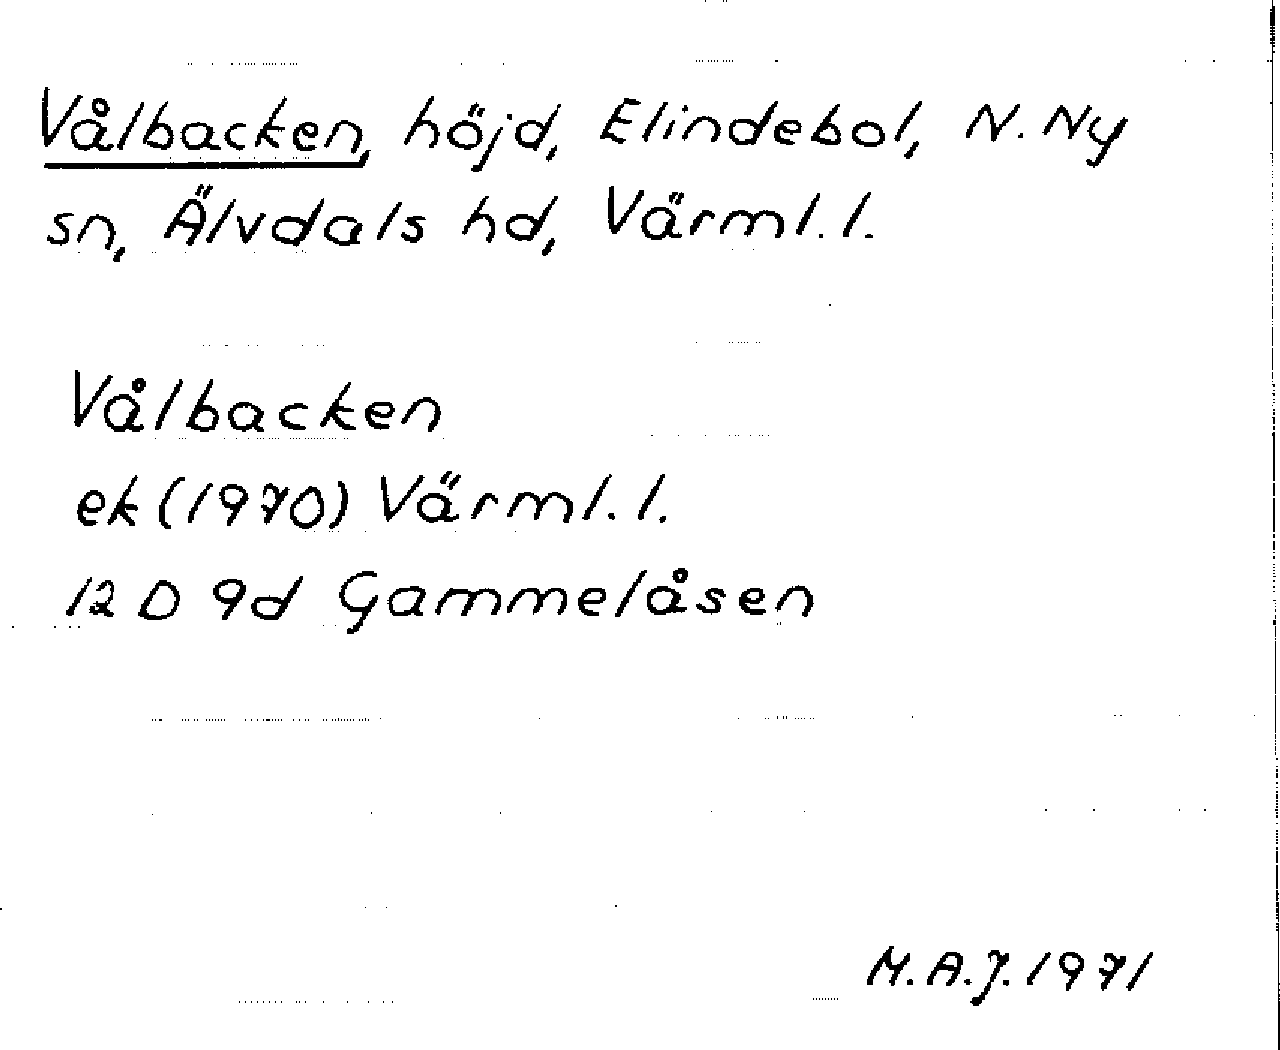 Vålbacken, höjd, Elindebol, N. Ny
sn, Älvdals hd, Värml. l.
Vålbacken
ek (1970) Värml. l.
12 D 9d Gammelåsen
M.A.J. 1971